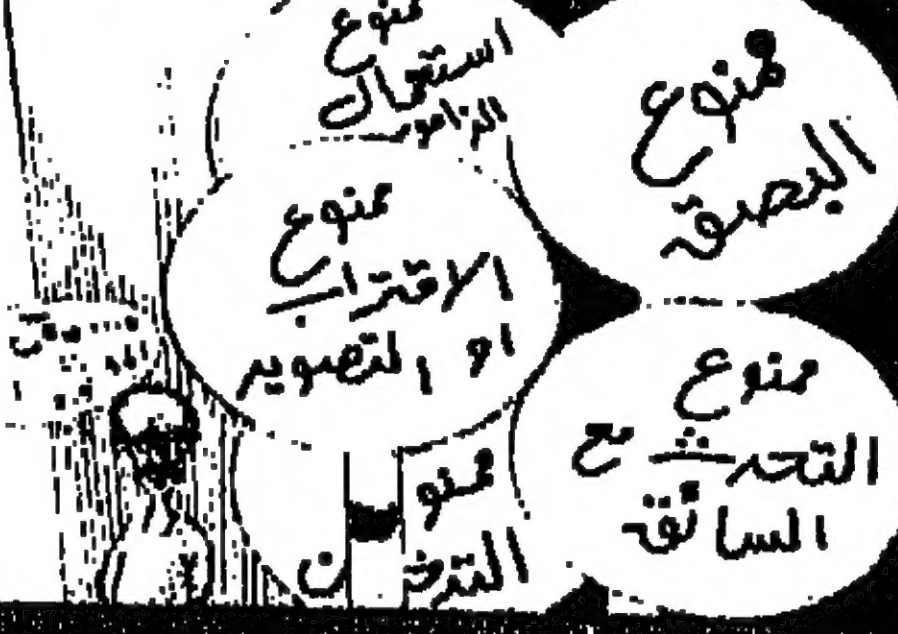 ممنوع
استعمال
الزامور
ممنوع
البصق
ممنوع
الاقتراب
او التصوير
ممنوع
التحدث مع
السائق
ممنو
التدخ ن